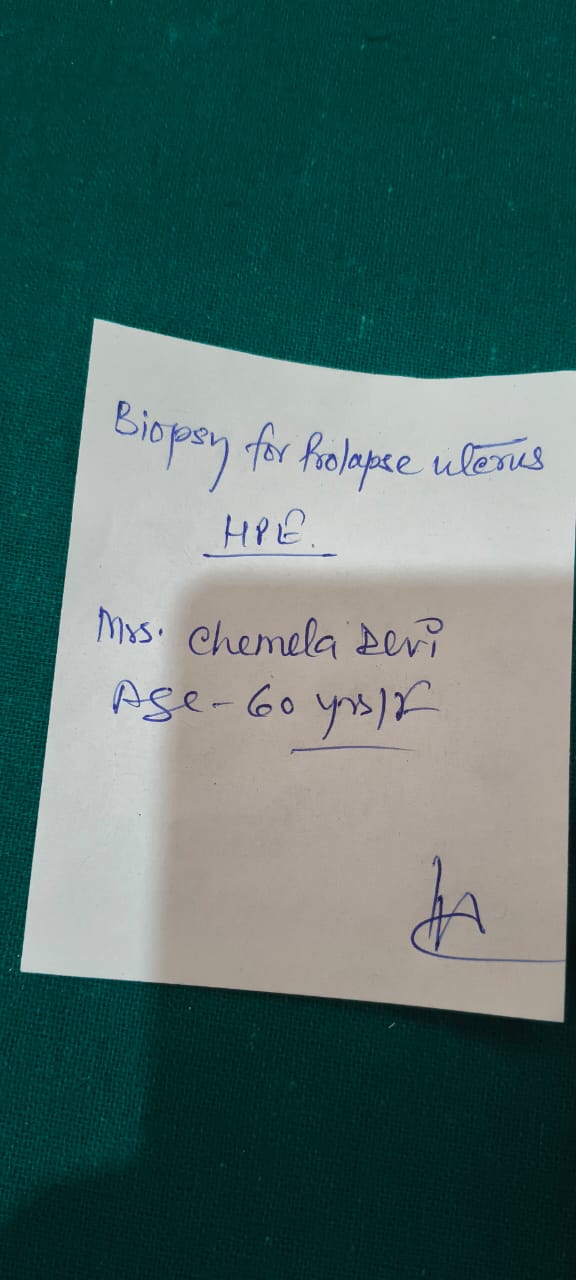 Biopsy for Prolapse uterus
HPE.
Mrs. Chemela Devi
Age - 60 yrs/F